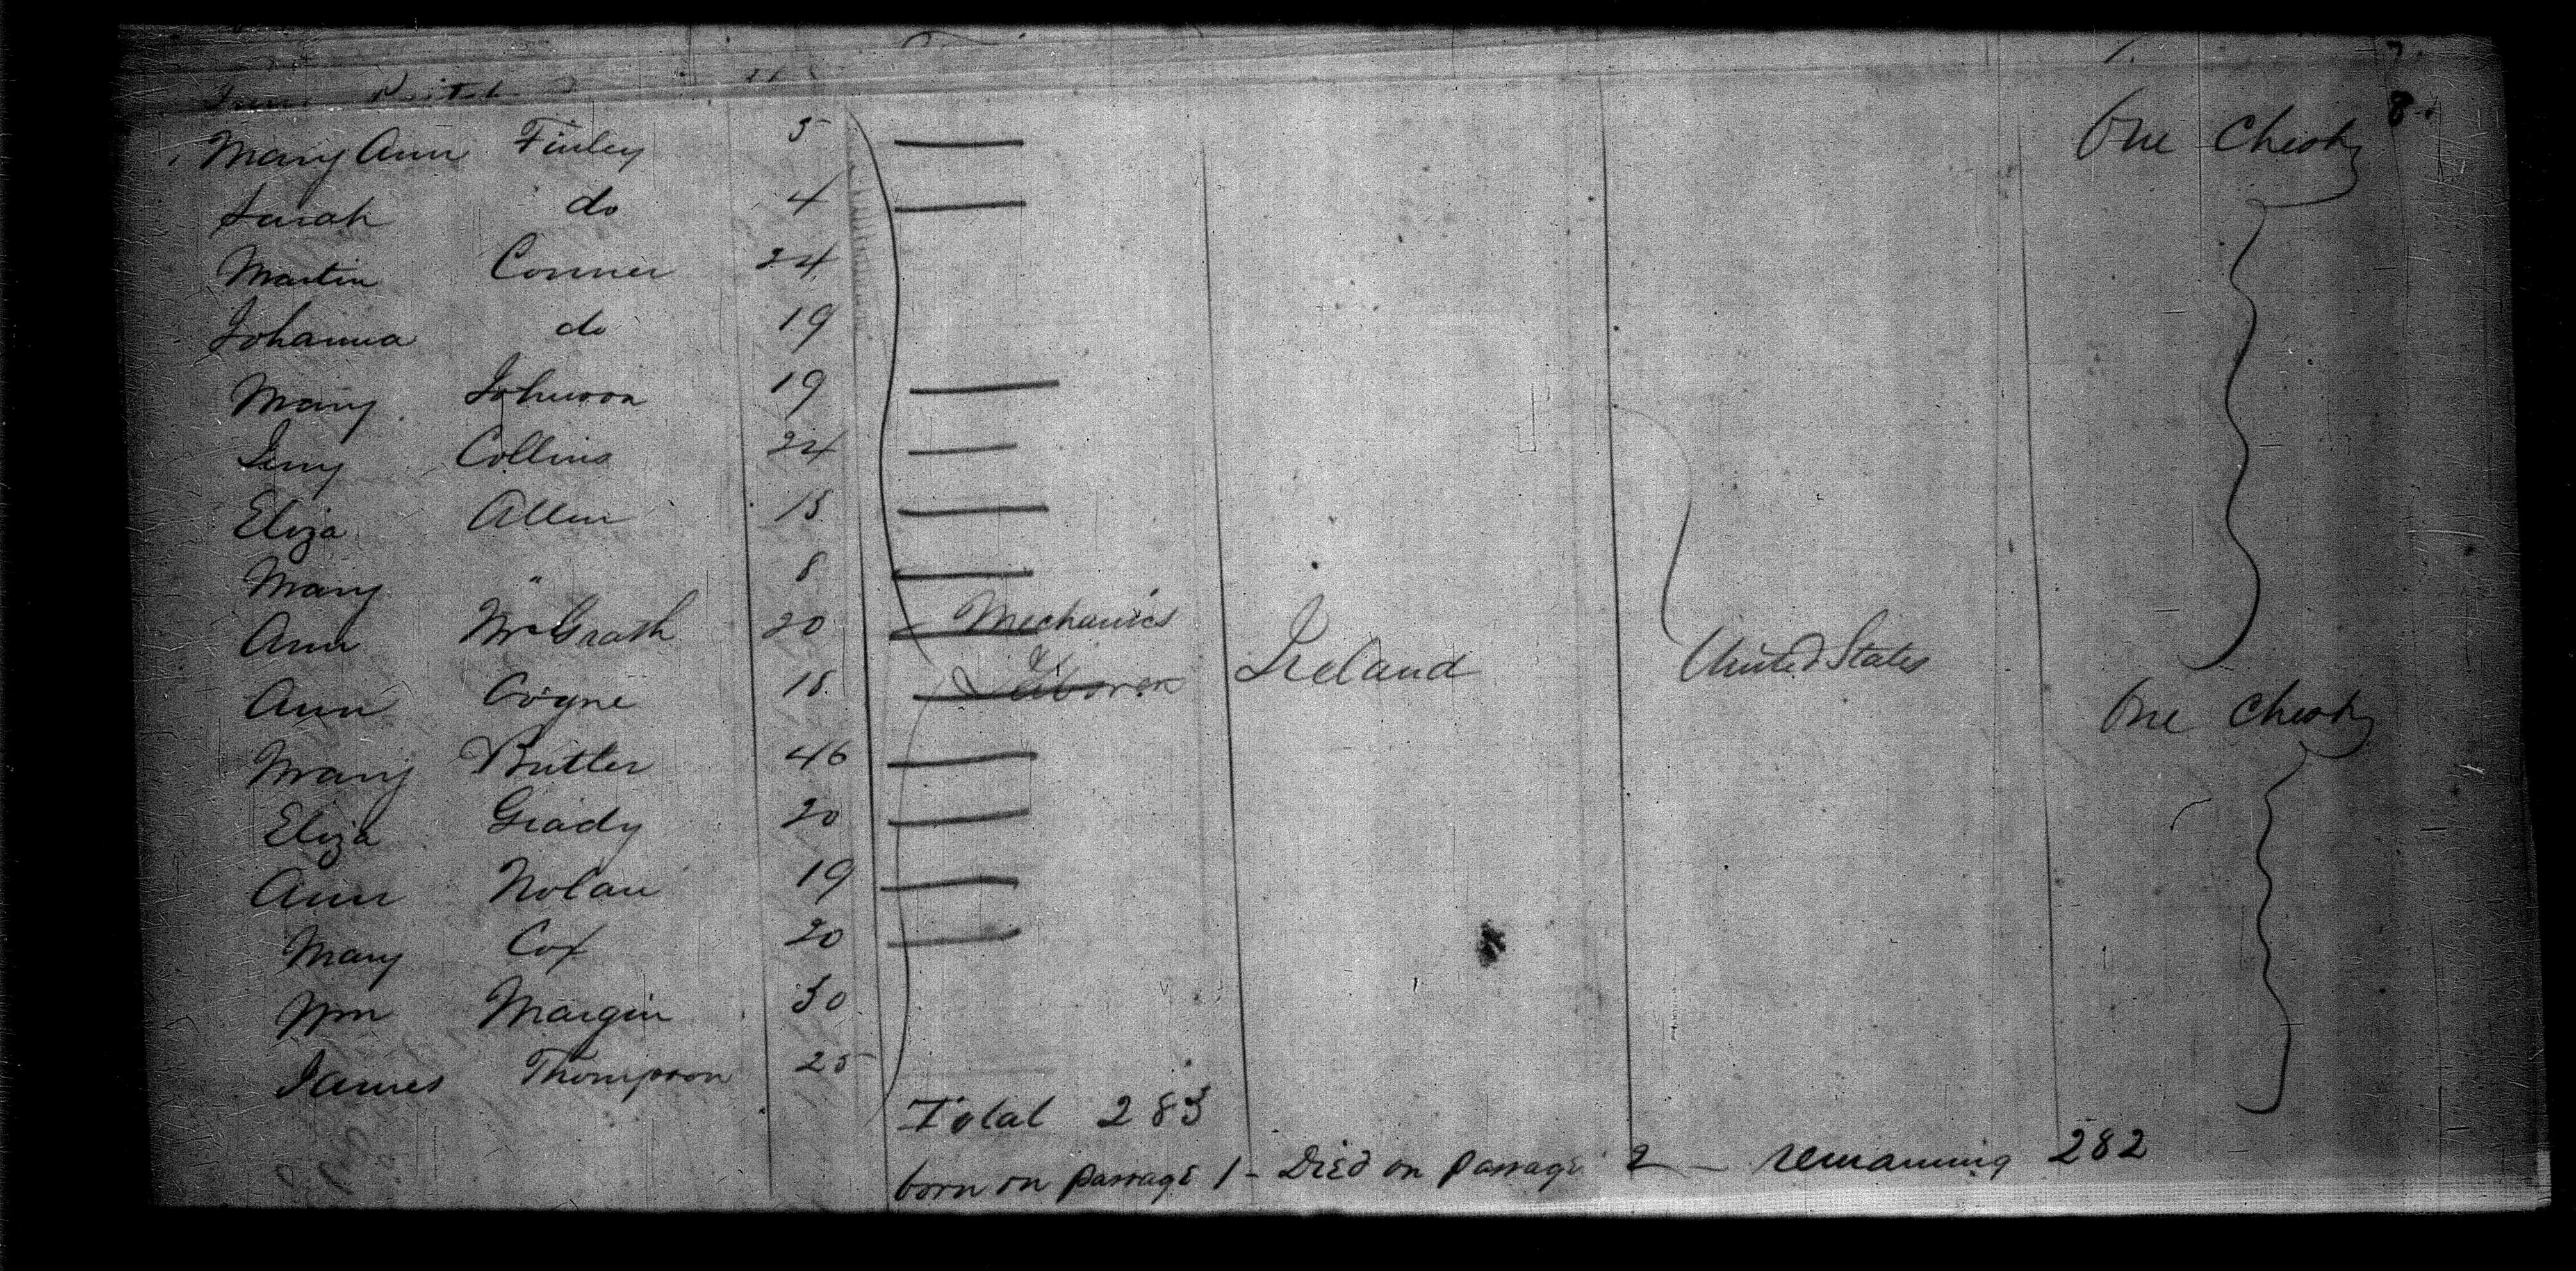 7.
Mary Ann Finley 5 One Chest 8
Sarah do 4
Martin Conner 24
Johanna do 19
Mary Johnson 19
Jerry Collins 24
Eliza Allen 15
Mary " 8
Ann McGrath 20 Mechanics
Ann Coyne 18 Laborer Ireland United States
One Chest
Mary Butler 46
Eliza Grady 20
Ann Nolan 19
Mary Cox 20
Wm Margin 30
James Thompson 25
Total 283
born on passage 1 - Died on passage 2 - remaining 282